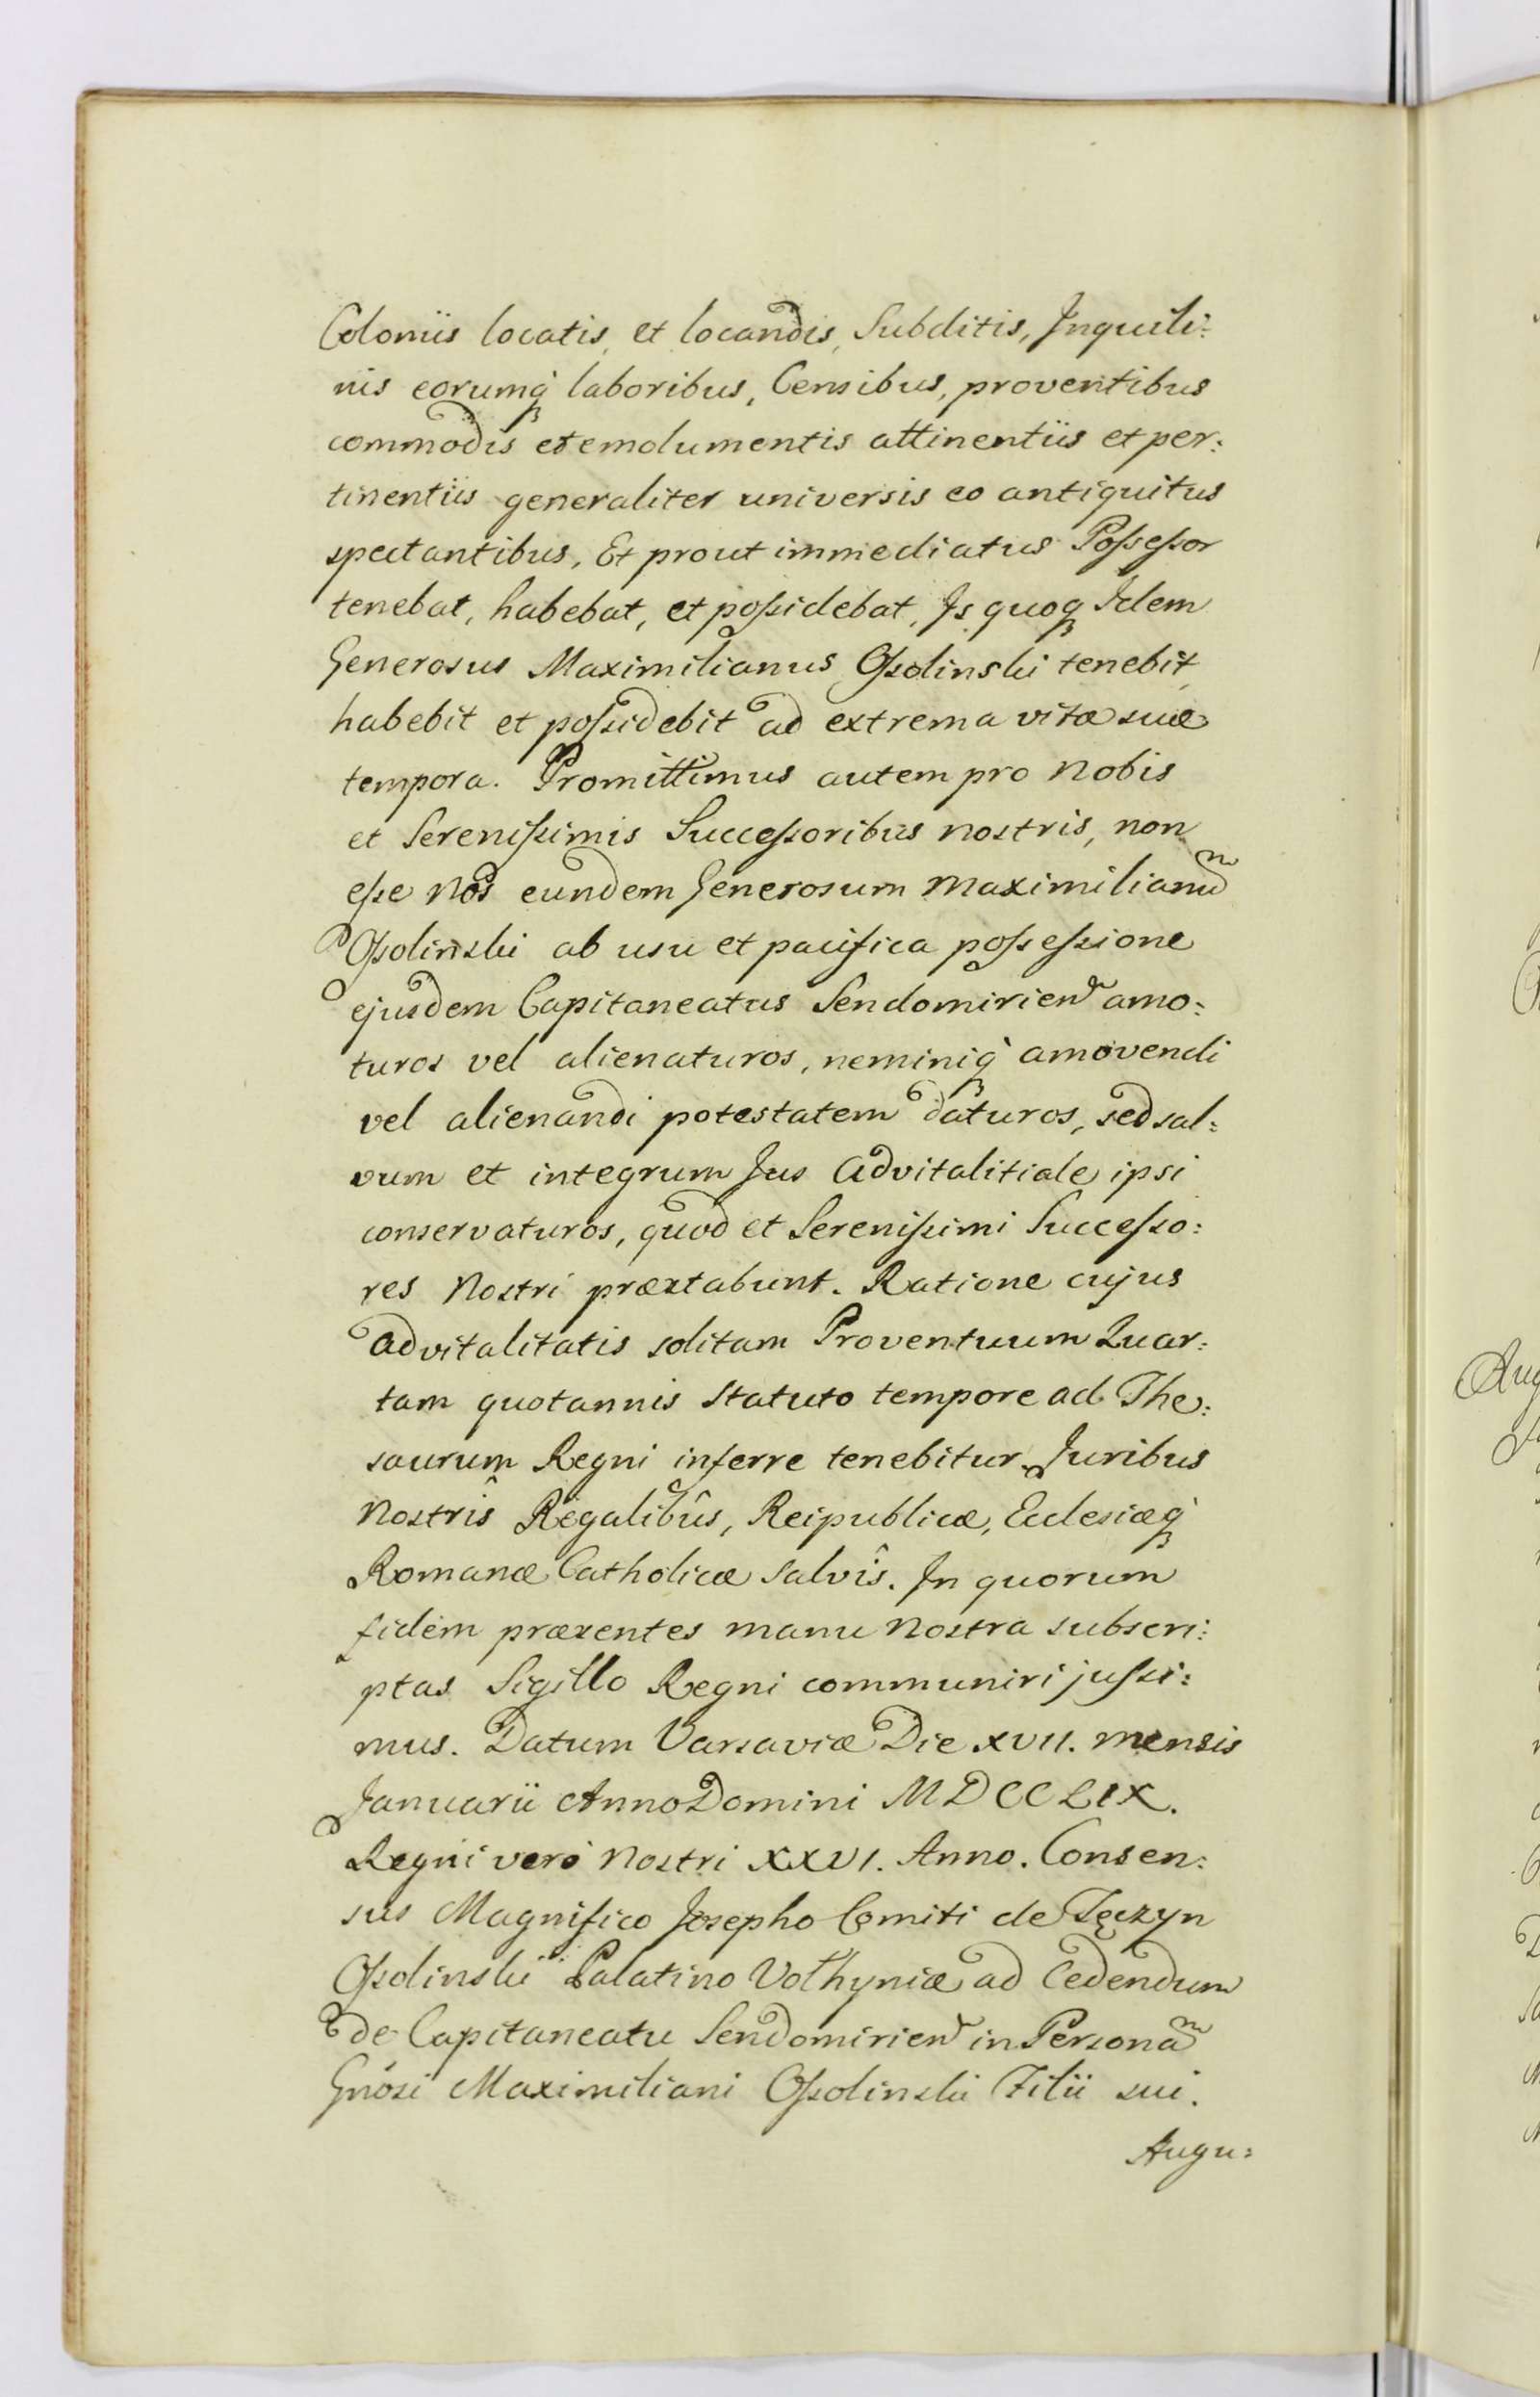 Coloniis locatis, et locandis, Subditis, Inquili:
nis eorumq́ꝫ laboribus, Censibus, proventibus
commodis et emolumentis attinentiis et per:
tinentiis generaliter universis eo antiquitus
spectantibus, Et prout immediatus Poſseſsor
tenebat, habebat, et poſsidebat, Is quoqꝫ Idem
Generosus Maximilianus Oſsolinski tenebit,
habebit et poſsidebit ad extrema vitæ suæ
tempora. Promittimus autem pro Nobis
et Sereniſsimis Succeſsoribus nostris, non
eſse Nos eundem Generosum Maximilianum̃
Oſsolinski ab usu et pacifica poſseſsione
ejusdem Capitaneatus Sendomirien̄ amo:
turos vel alienaturos, neminiq́ꝫ amovendi
vel alienandi potestatem daturos, sed sal:
vum et integrum Jus Advitalitiale ipsi
conservaturos, quod et Sereniſsimi Succeſso:
res Nostri præstabunt. Ratione cujus
advitalitatis solitam Proventuum Quar:
tam quotannis Statuto tempore ad The:
saurum Regni inferre tenebitur. Juribus
Nostrîs Regalibûs, Reipublicæ, Ecclesiæq́ꝫ
Romanæ Catholicæ salvîs. In quorum
fidem præsentes manu Nostra subscri:
ptas Sigillo Regni communiri juſsi:
mus. Datum Varsaviæ Die XVII. mensis
Januarii Anno Domini MDCCLIX.
Regni verò Nostri XXVI. Anno. Consen:
sus Magnifico Josepho Comiti de Tęczyn
Oſsolinski Palatino Volhyniæ ad Cedendum
de Capitaneatu Sendomirien̄ in Personam̃
Gnósi Maximiliani Oſsolinski Filii sui.
Augu: